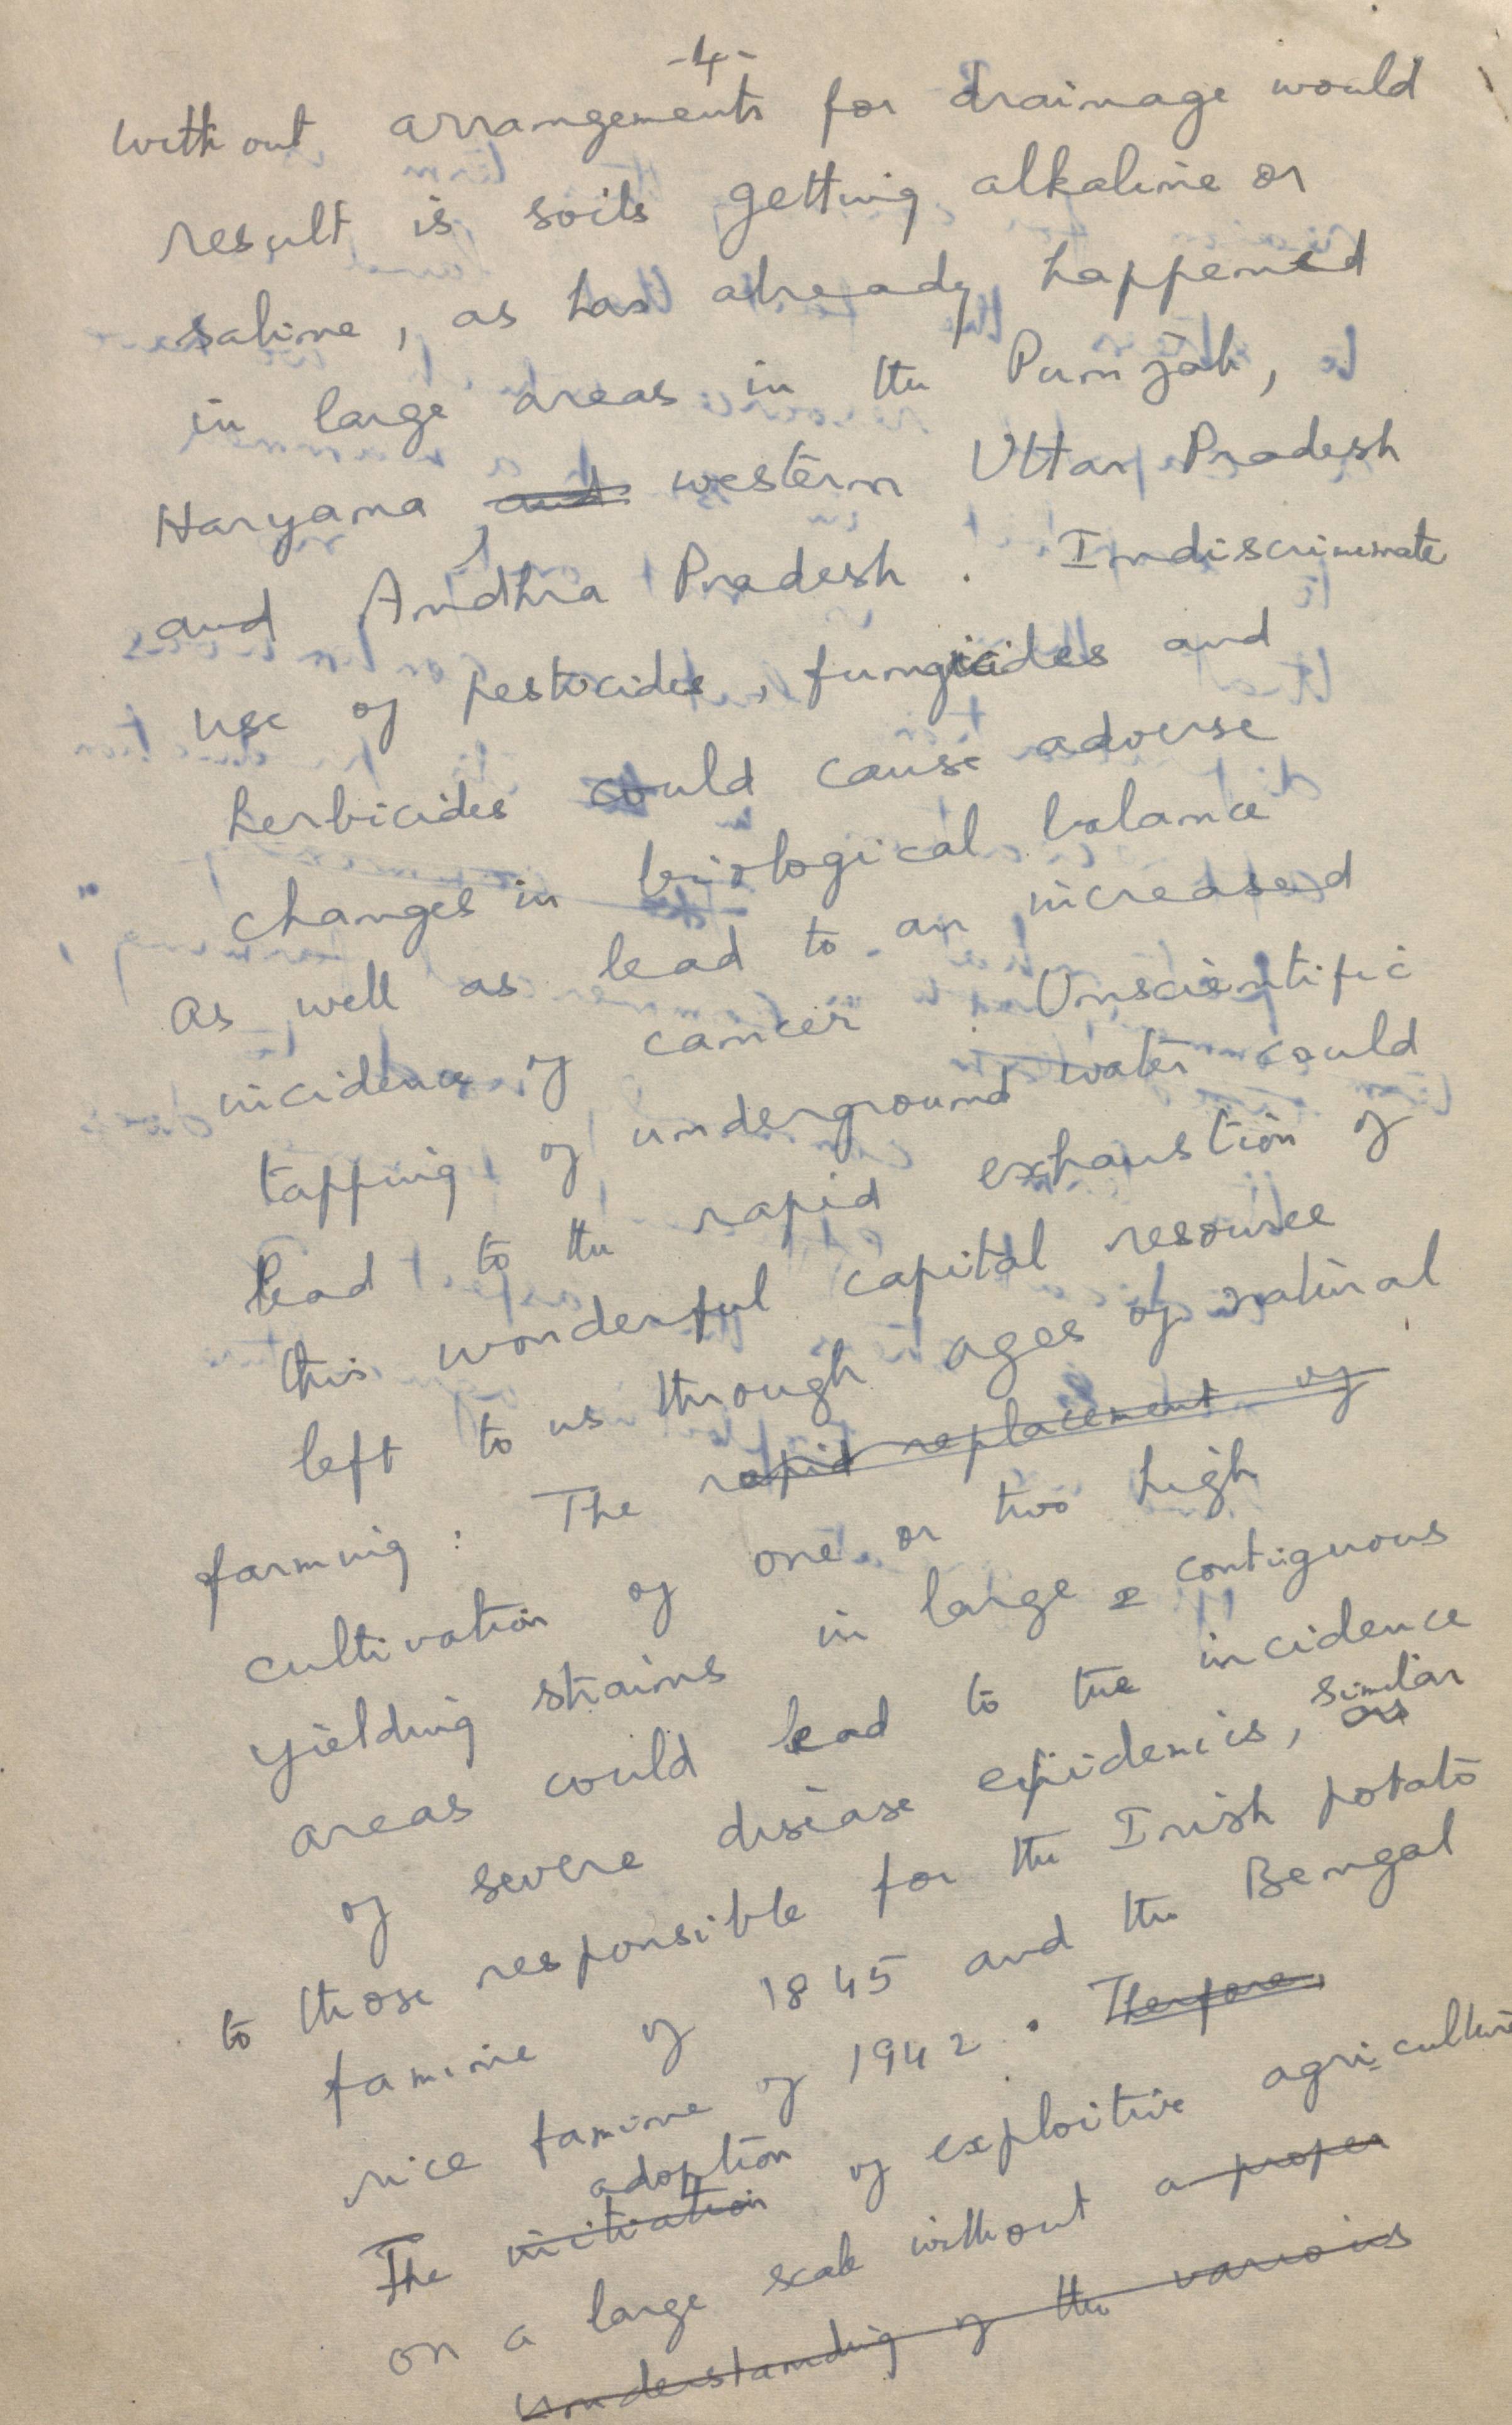 -4-
without arrangements for drainage would
result is soils getting alkaline or
saline, as has already happened
in large areas in the Punjab,
Haryana, and western Uttar Pradesh
and Andhra Pradesh. Indiscriminate
use of pesticides, fungicides and
herbicides could cause adverse
changes in biological balance
as well as lead to an increased
incidence of cancer. Unscientific
tapping of underground water could
lead to the rapid exhaustion of
this wonderful capital resource
left to us through ages of natural
farming. The rapid replacement of
cultivation of one or two high
yielding strains in large contiguous
areas could lead to the incidence
of severe disease epidemics, as similar
to those responsible for the Irish potato
famine of 1845 and the Bengal
rice famine of 1942. Therefore,
The initiation adoption of exploitive agriculture
on a large scale without a proper
understanding of the various